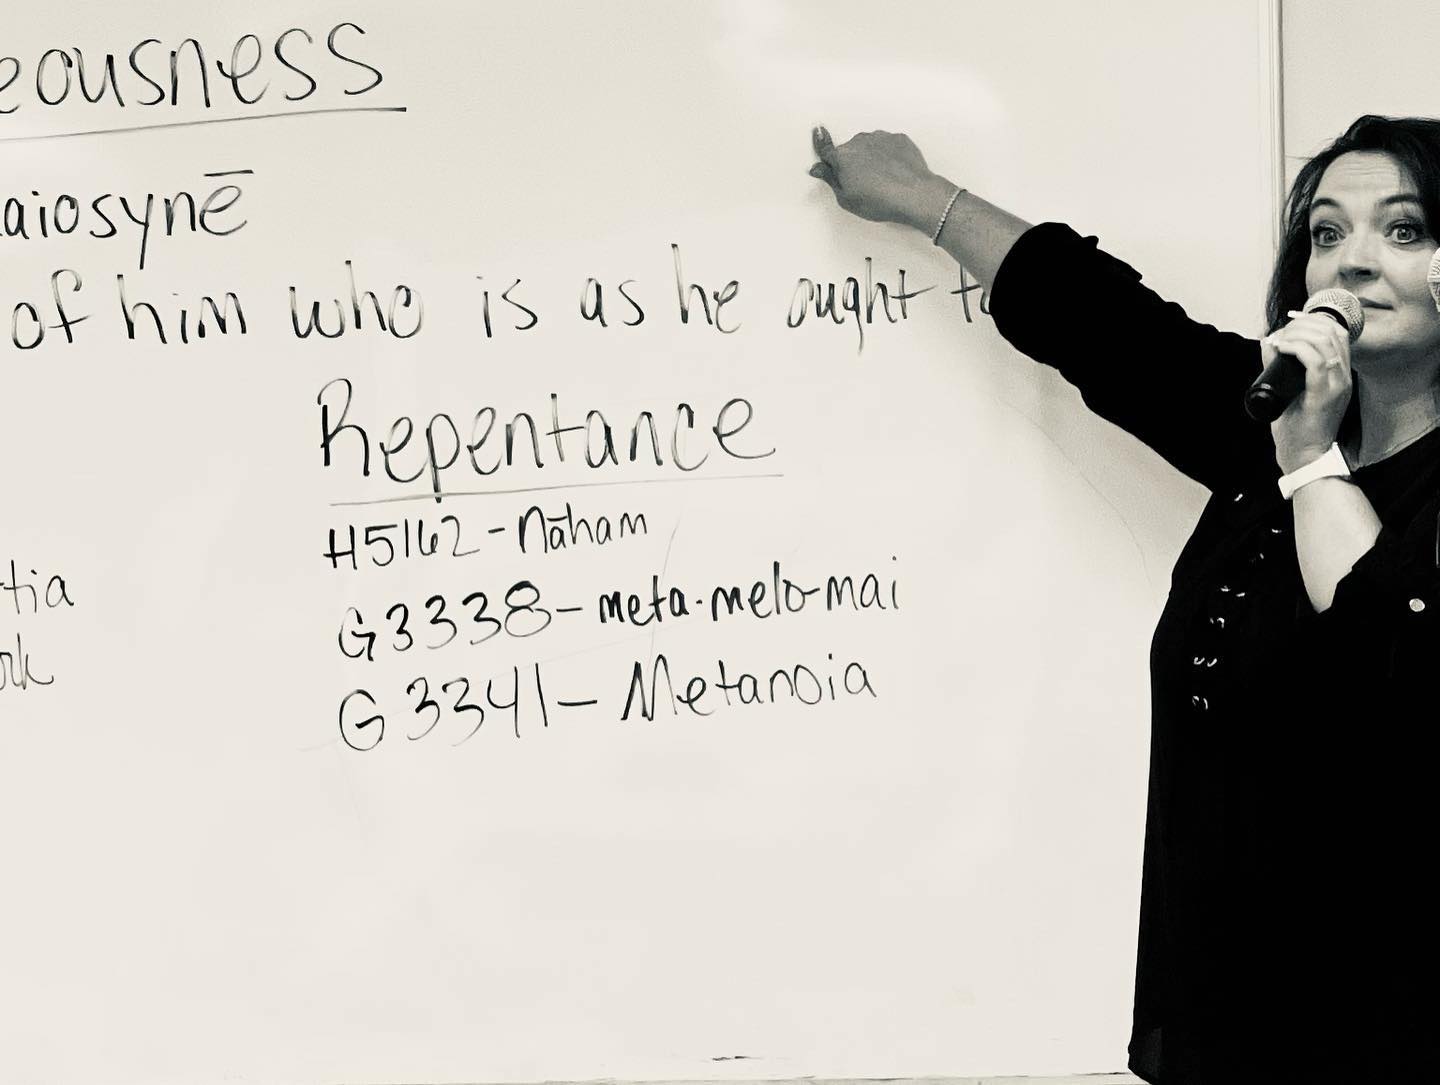 eousness
aiosynē
of him who is as he ought to
Repentance
H5162 - Nāham
G3338 - meta-melo-mai
G3341 - Metanoia
tia
ork